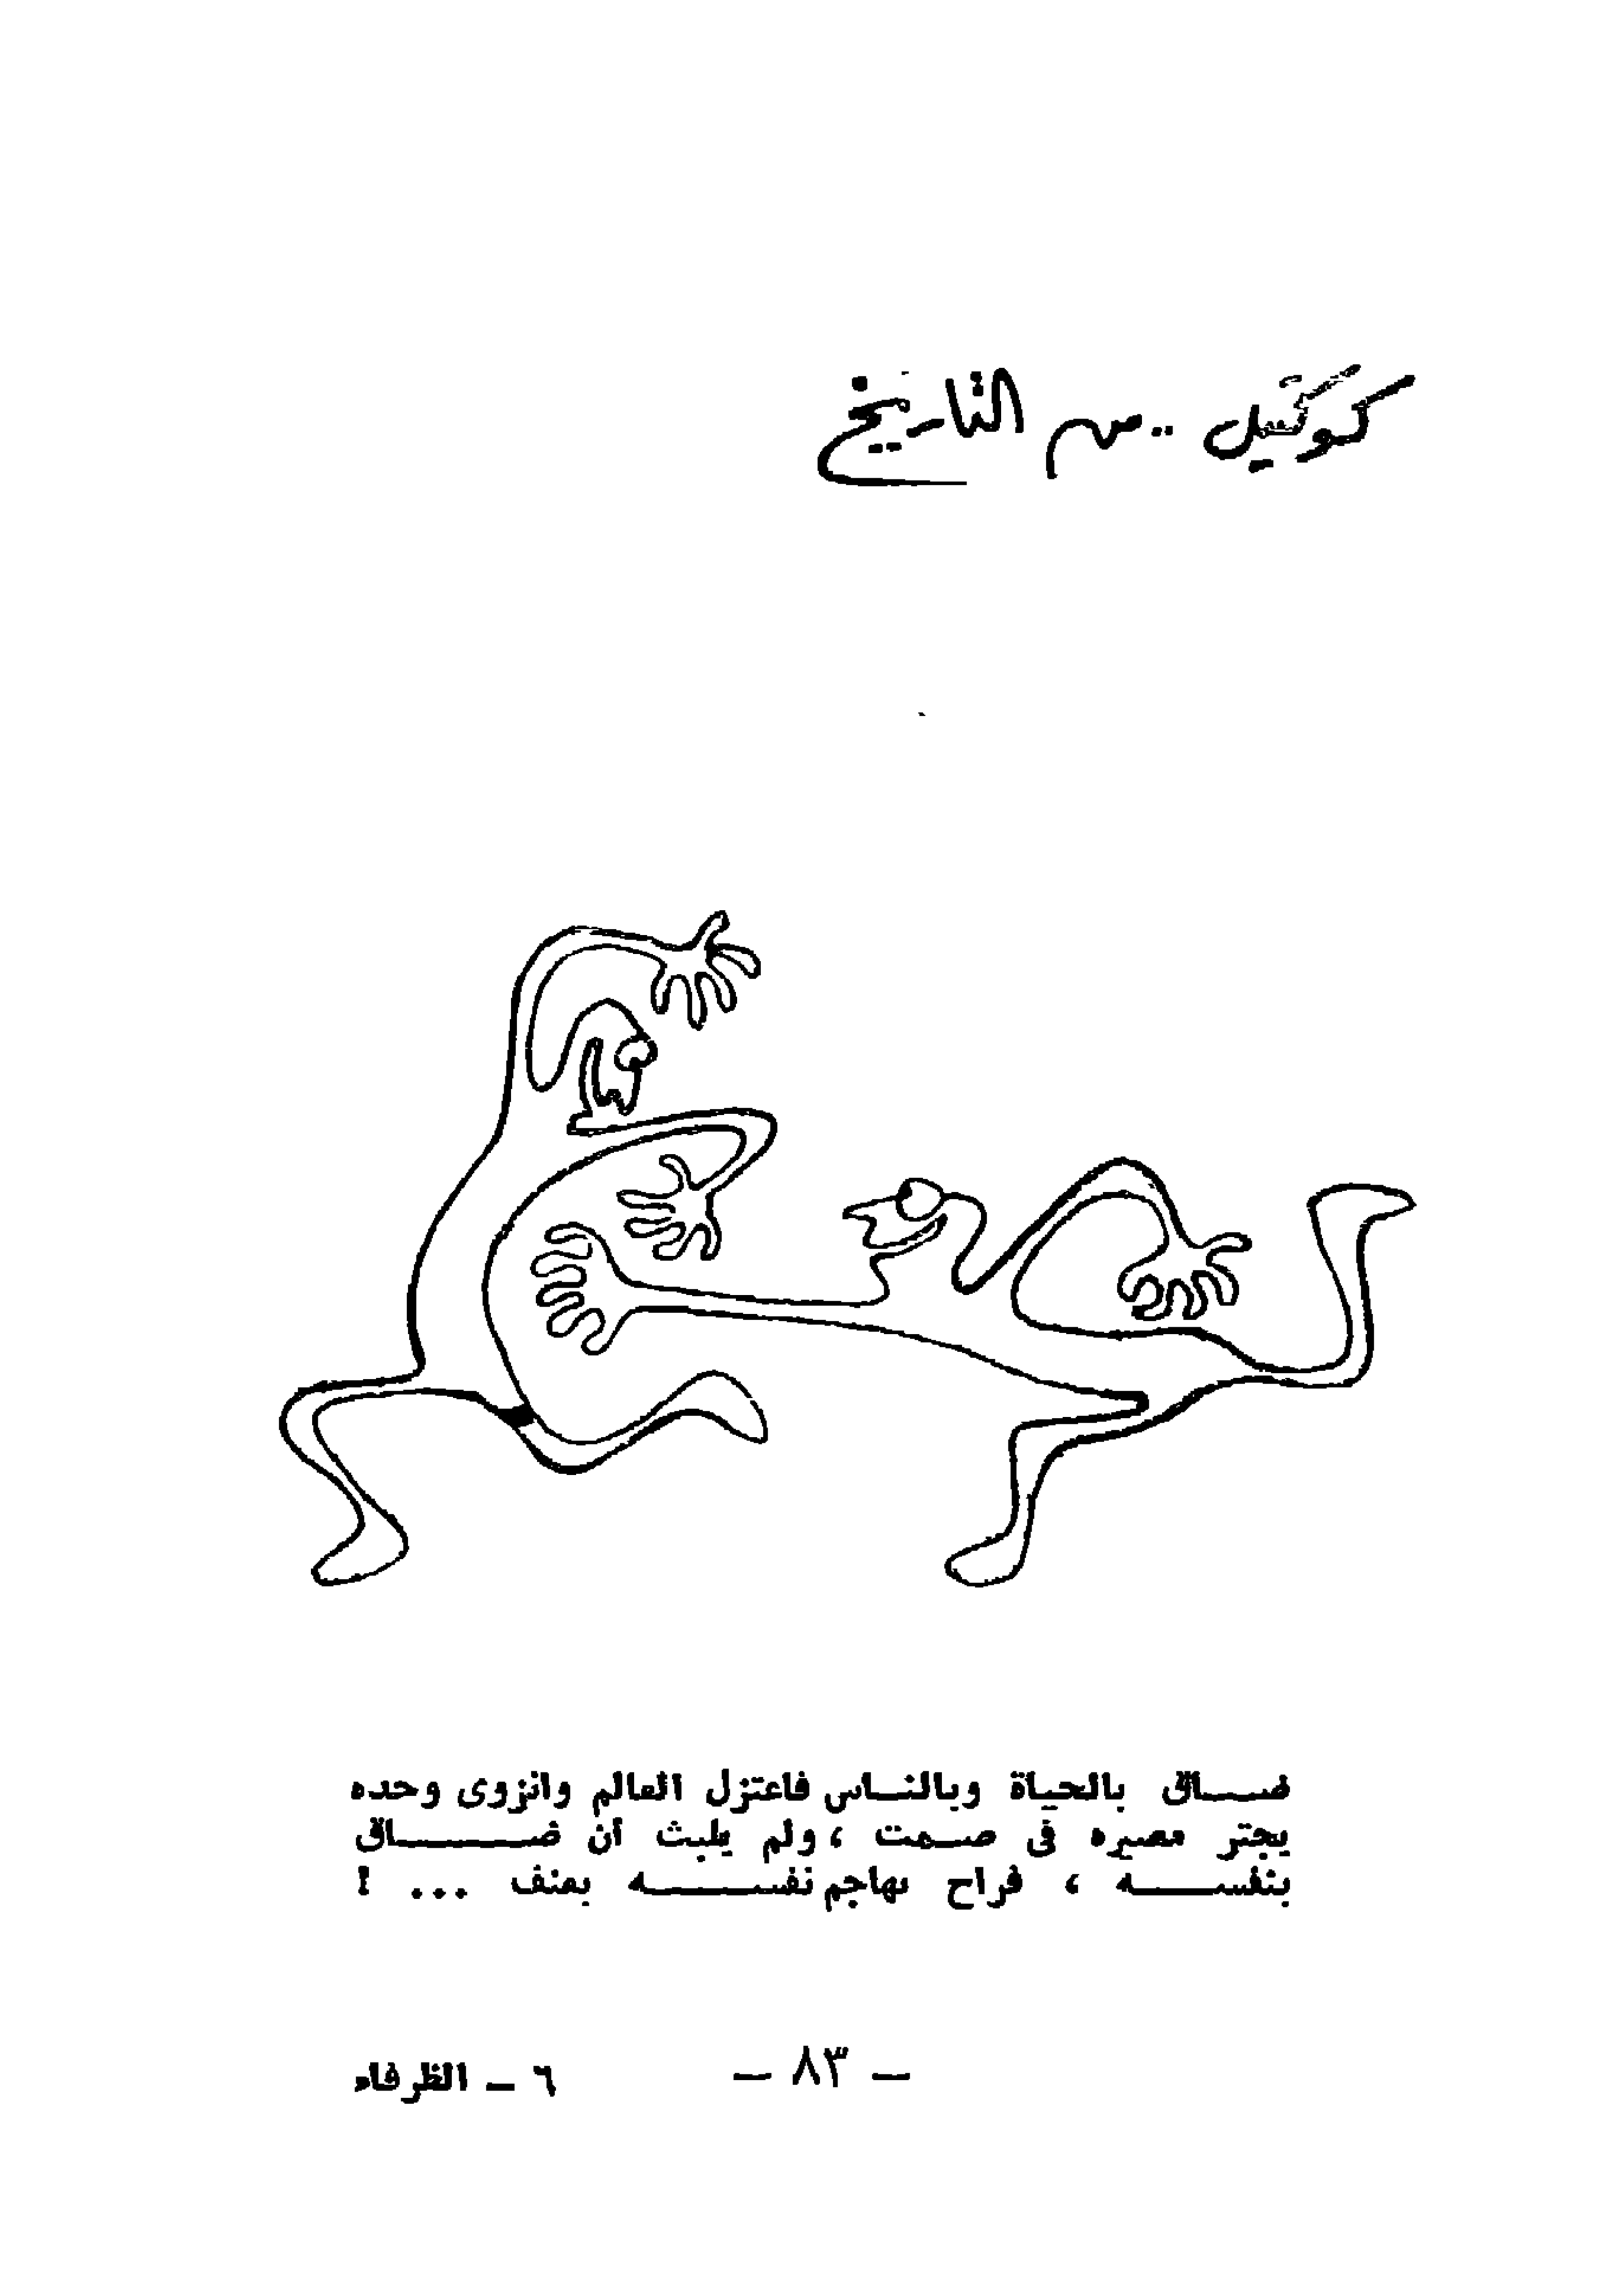 كوكتيل .. من التاريخ
ضاق بالحياة وبالناس فاعتزل العالم وانزوى وحده
يجتر مصيره فى صمت ، ولم يلبث أن ضاق
بنفسه ، فراح يهاجم نفسه بعنف ... !
— ٨٣ —
٦ — الظرفاء